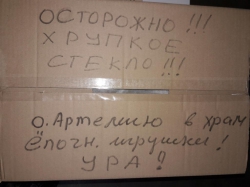 ОСТОРОЖНО !!!
ХРУПКОЕ
СТЕКЛО !!!
О. Артемию в храм
ёлочн. игрушки !
УРА !